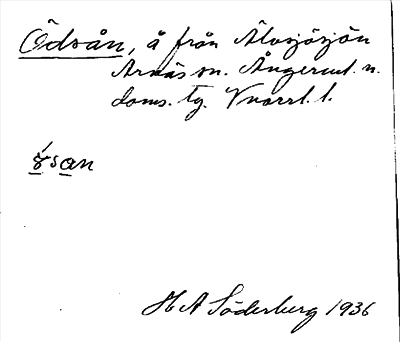 Ödsån, å från Älvsjösjön
Arnäs sn. Ångerml. n.
doms. tg. Vnorrl. l.
ɤ́san
H A Söderberg 1936